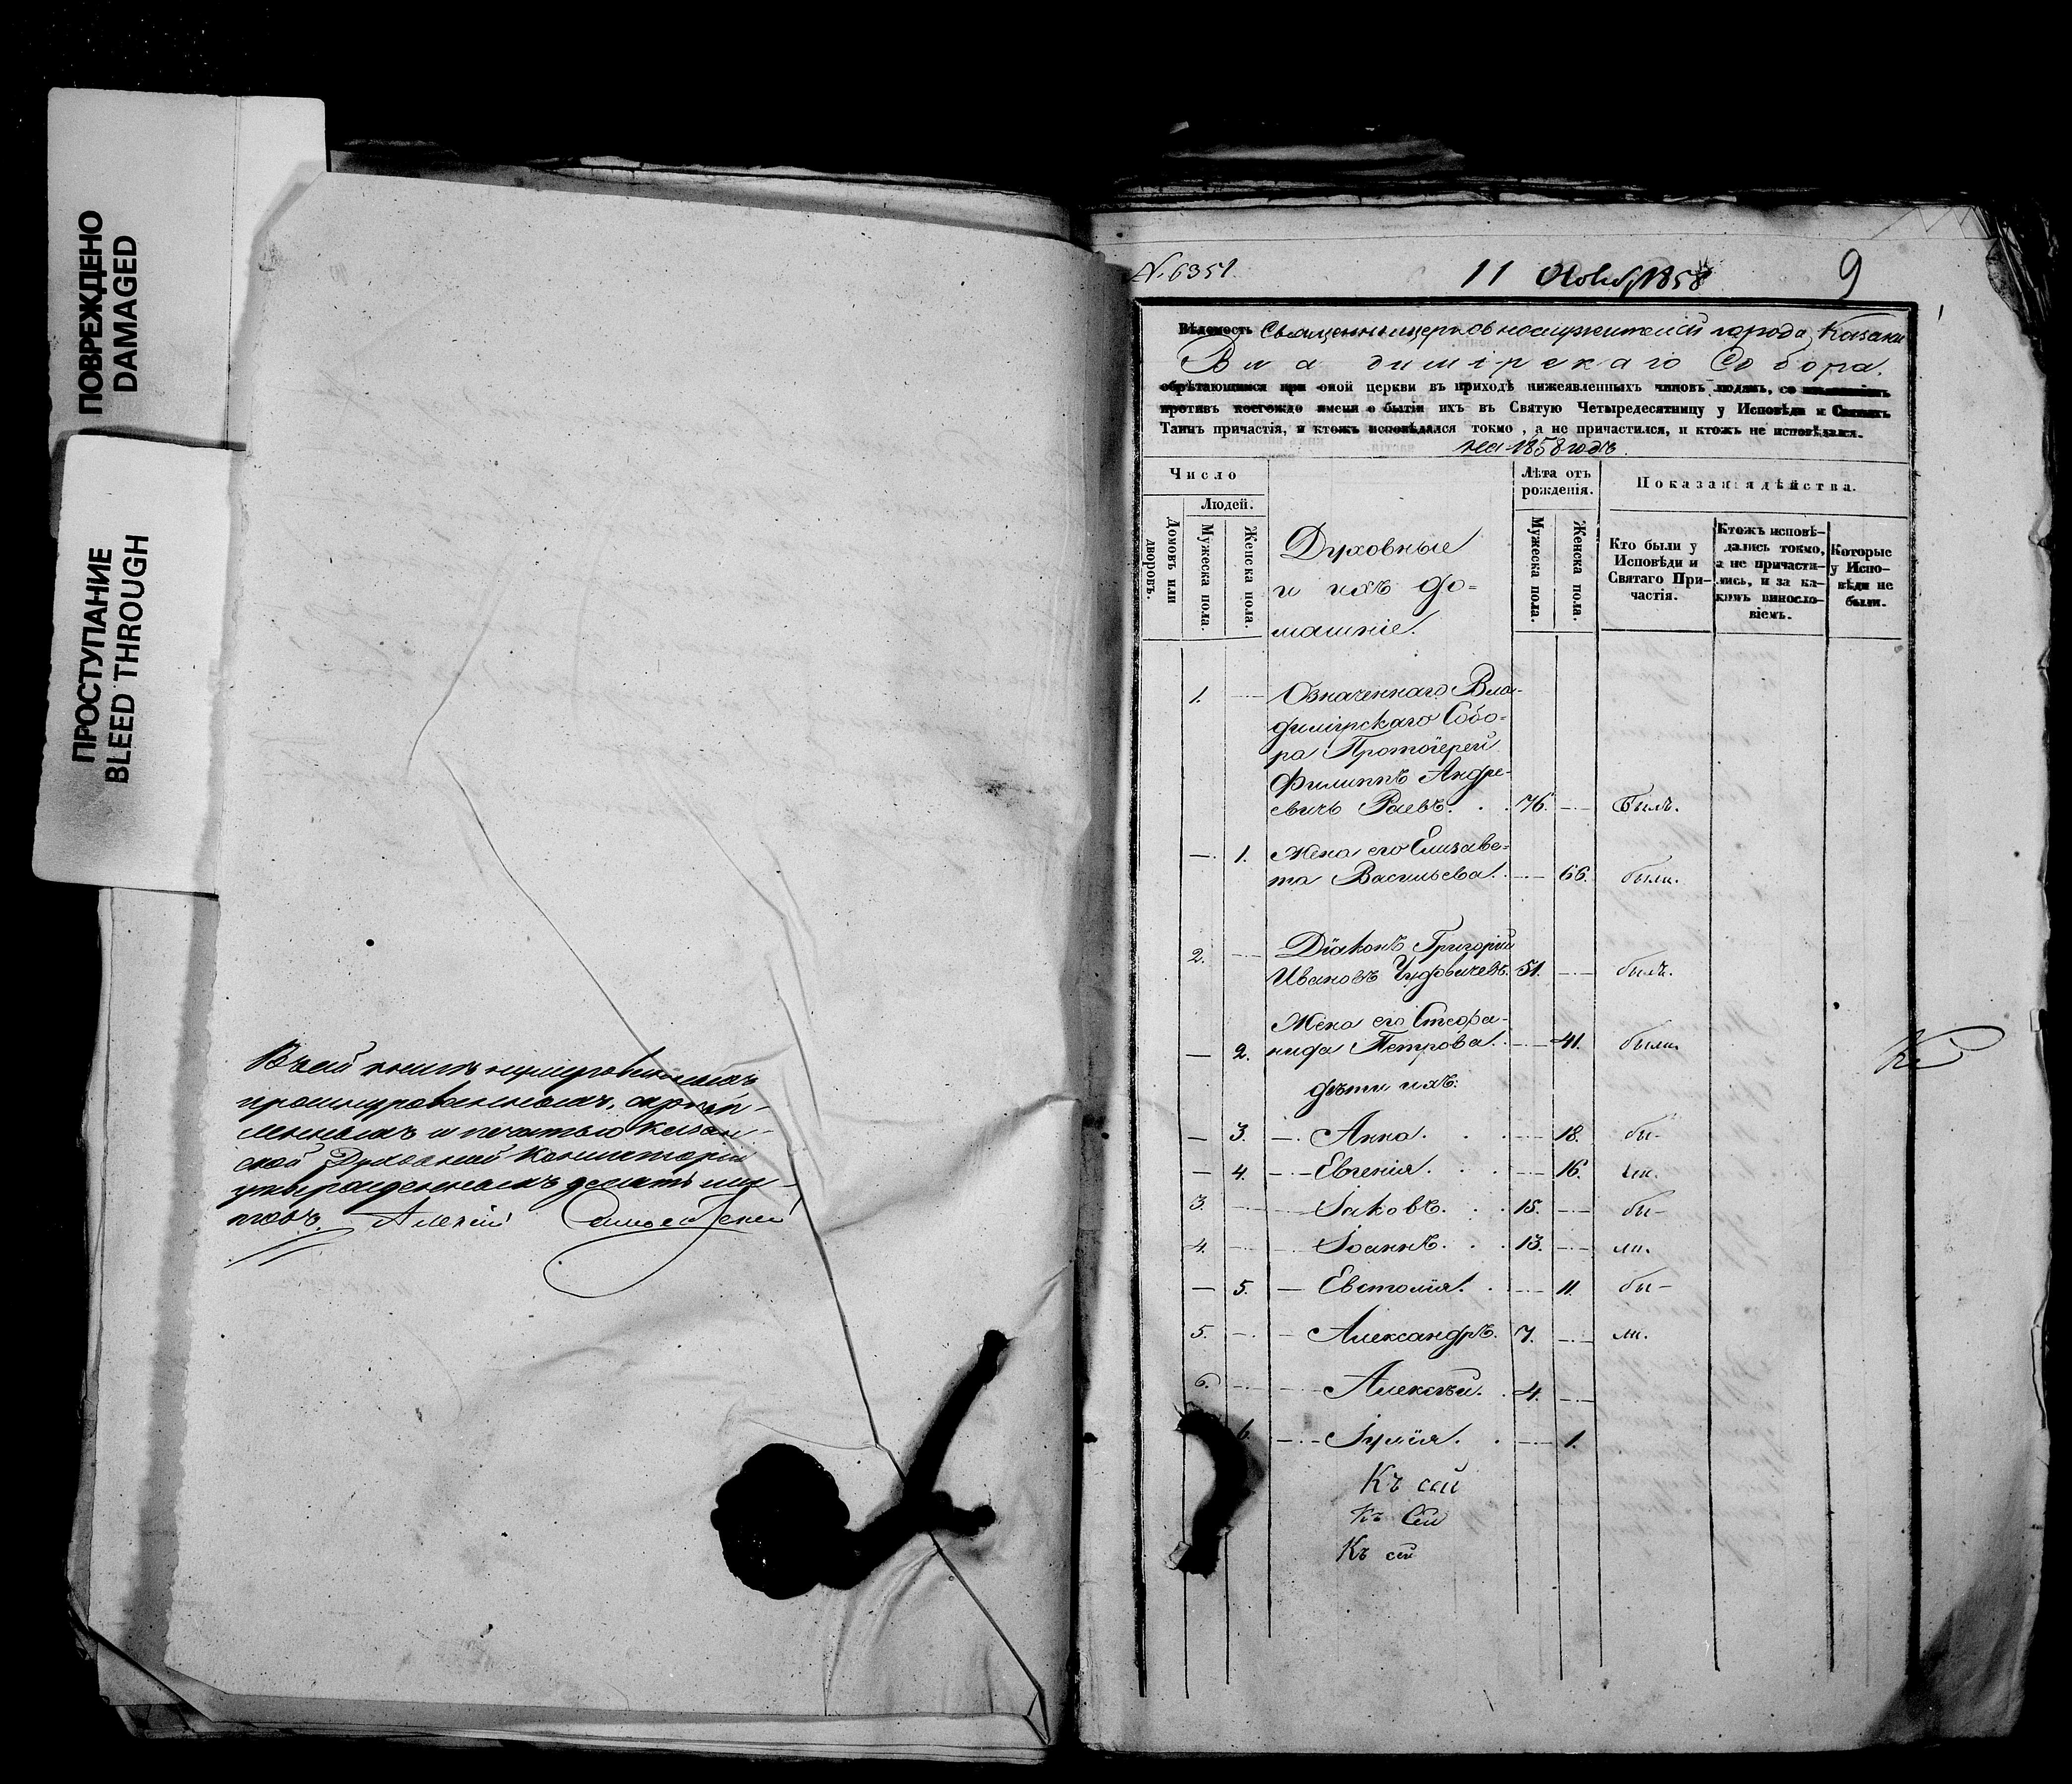 ПОВРЕЖДЕНО
DAMAGED
ПРОСТУПАНИЕ
BLEED THROUGH
Въ сей книгѣ нумерованныхъ
прошнурованныхъ, скрѣп-
ленныхъ и печатью Казан-
ской Духовной Консисторіи
утвержденныхъ десять лис-
товъ. Алексій
N. 6351. 11 1858 9
Вѣдомость Священноцерковнослужителей города Казани
Владимірскаго Собора.
обрѣтающимся при оной церкви въ приходѣ нижеявленныхъ чиновъ людямъ, со изъявленіемъ
противъ коегождо имени о бытіи ихъ въ Святую Четыредесятницу у Исповѣди и Святыхъ
Таинъ причастія, и ктожъ исповѣдался токмо, а не причастился, и ктожъ не исповѣдался.
на 1858 годъ.
Число
Людей.
Домовъ или дворовъ.
Мужеска пола.
Женска пола.
Духовные
и ихъ до-
машніе.
Лѣта отъ
рожденія.
Мужеска пола.
Женска пола.
Показанія дѣйства.
Кто были у
Исповѣди и
Святаго При-
частія.
Ктожъ исповѣ-
дались токмо,
а не причасти-
лись, и за ка-
кимъ винословіемъ.
Которые
у Испо-
вѣди не
были.
1. Означеннаго Вла-
димірскаго Собо-
ра Протоіерей
Филиппъ Андре-
евичъ Раевъ. 76. Былъ.
1. Жена его Елизаве-
та Васильева. 66. были.
2. Діаконъ Григорій
Ивановъ 51. былъ.
Жена его Стефа-
2. нида Петрова. 41. были
дѣти ихъ:
3. Анна. 18. бы-
4. Евгенія. 16. ли.
3. Іаковъ. 15. бы-
4. Іоаннъ. 13. ли.
5. Евстолія. 11. бы-
5. Александръ. 7. ли.
6. Алексѣй. 4.
6. Іулія. 1.
Къ сей
Къ сей
Къ сей